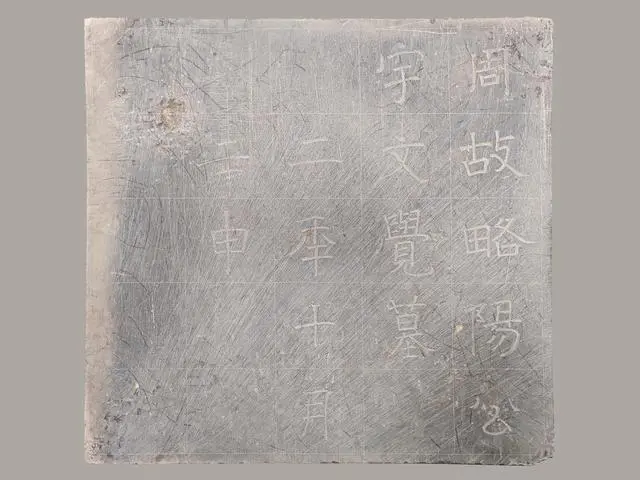 周故略陽公
宇文覺墓
二年十月
壬申